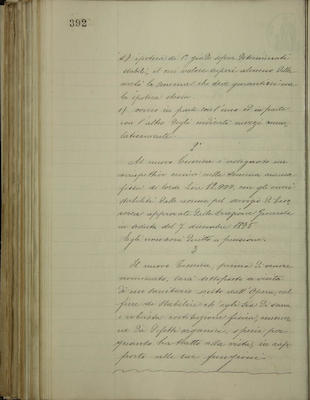 392
d) ipoteca di 1° grado sopra determinati
stabili, il cui valore superi almeno della
metà la somma che deve guarentirsi con
la ipoteca stessa
e) ovvero in parte con l'uno ed in parte
con l'altro degli indicati mezzi cumu
lativamente.
2°
Al nuovo Cassiere è assegnato un
stipendio annuo nella somma
di lorde Lire 12.000, con gli
stabiliti dalle norme pel servizio di
approvate dalla Congregazione Generale
in seduta del 7 dicembre 1895
Egli non avrà diritto a pensione.
3
Il nuovo Cassiere, prima di essere
nominato, sarà sottoposto a visita
di un sanitario scelto dall'Opera, nel
fine di stabilire ch'egli sia di sana
e robusta costituzione fisica, immu
ne da difetti organici, specie per
quanto ha tratto alla vista, in rap
porto alle sue funzioni.